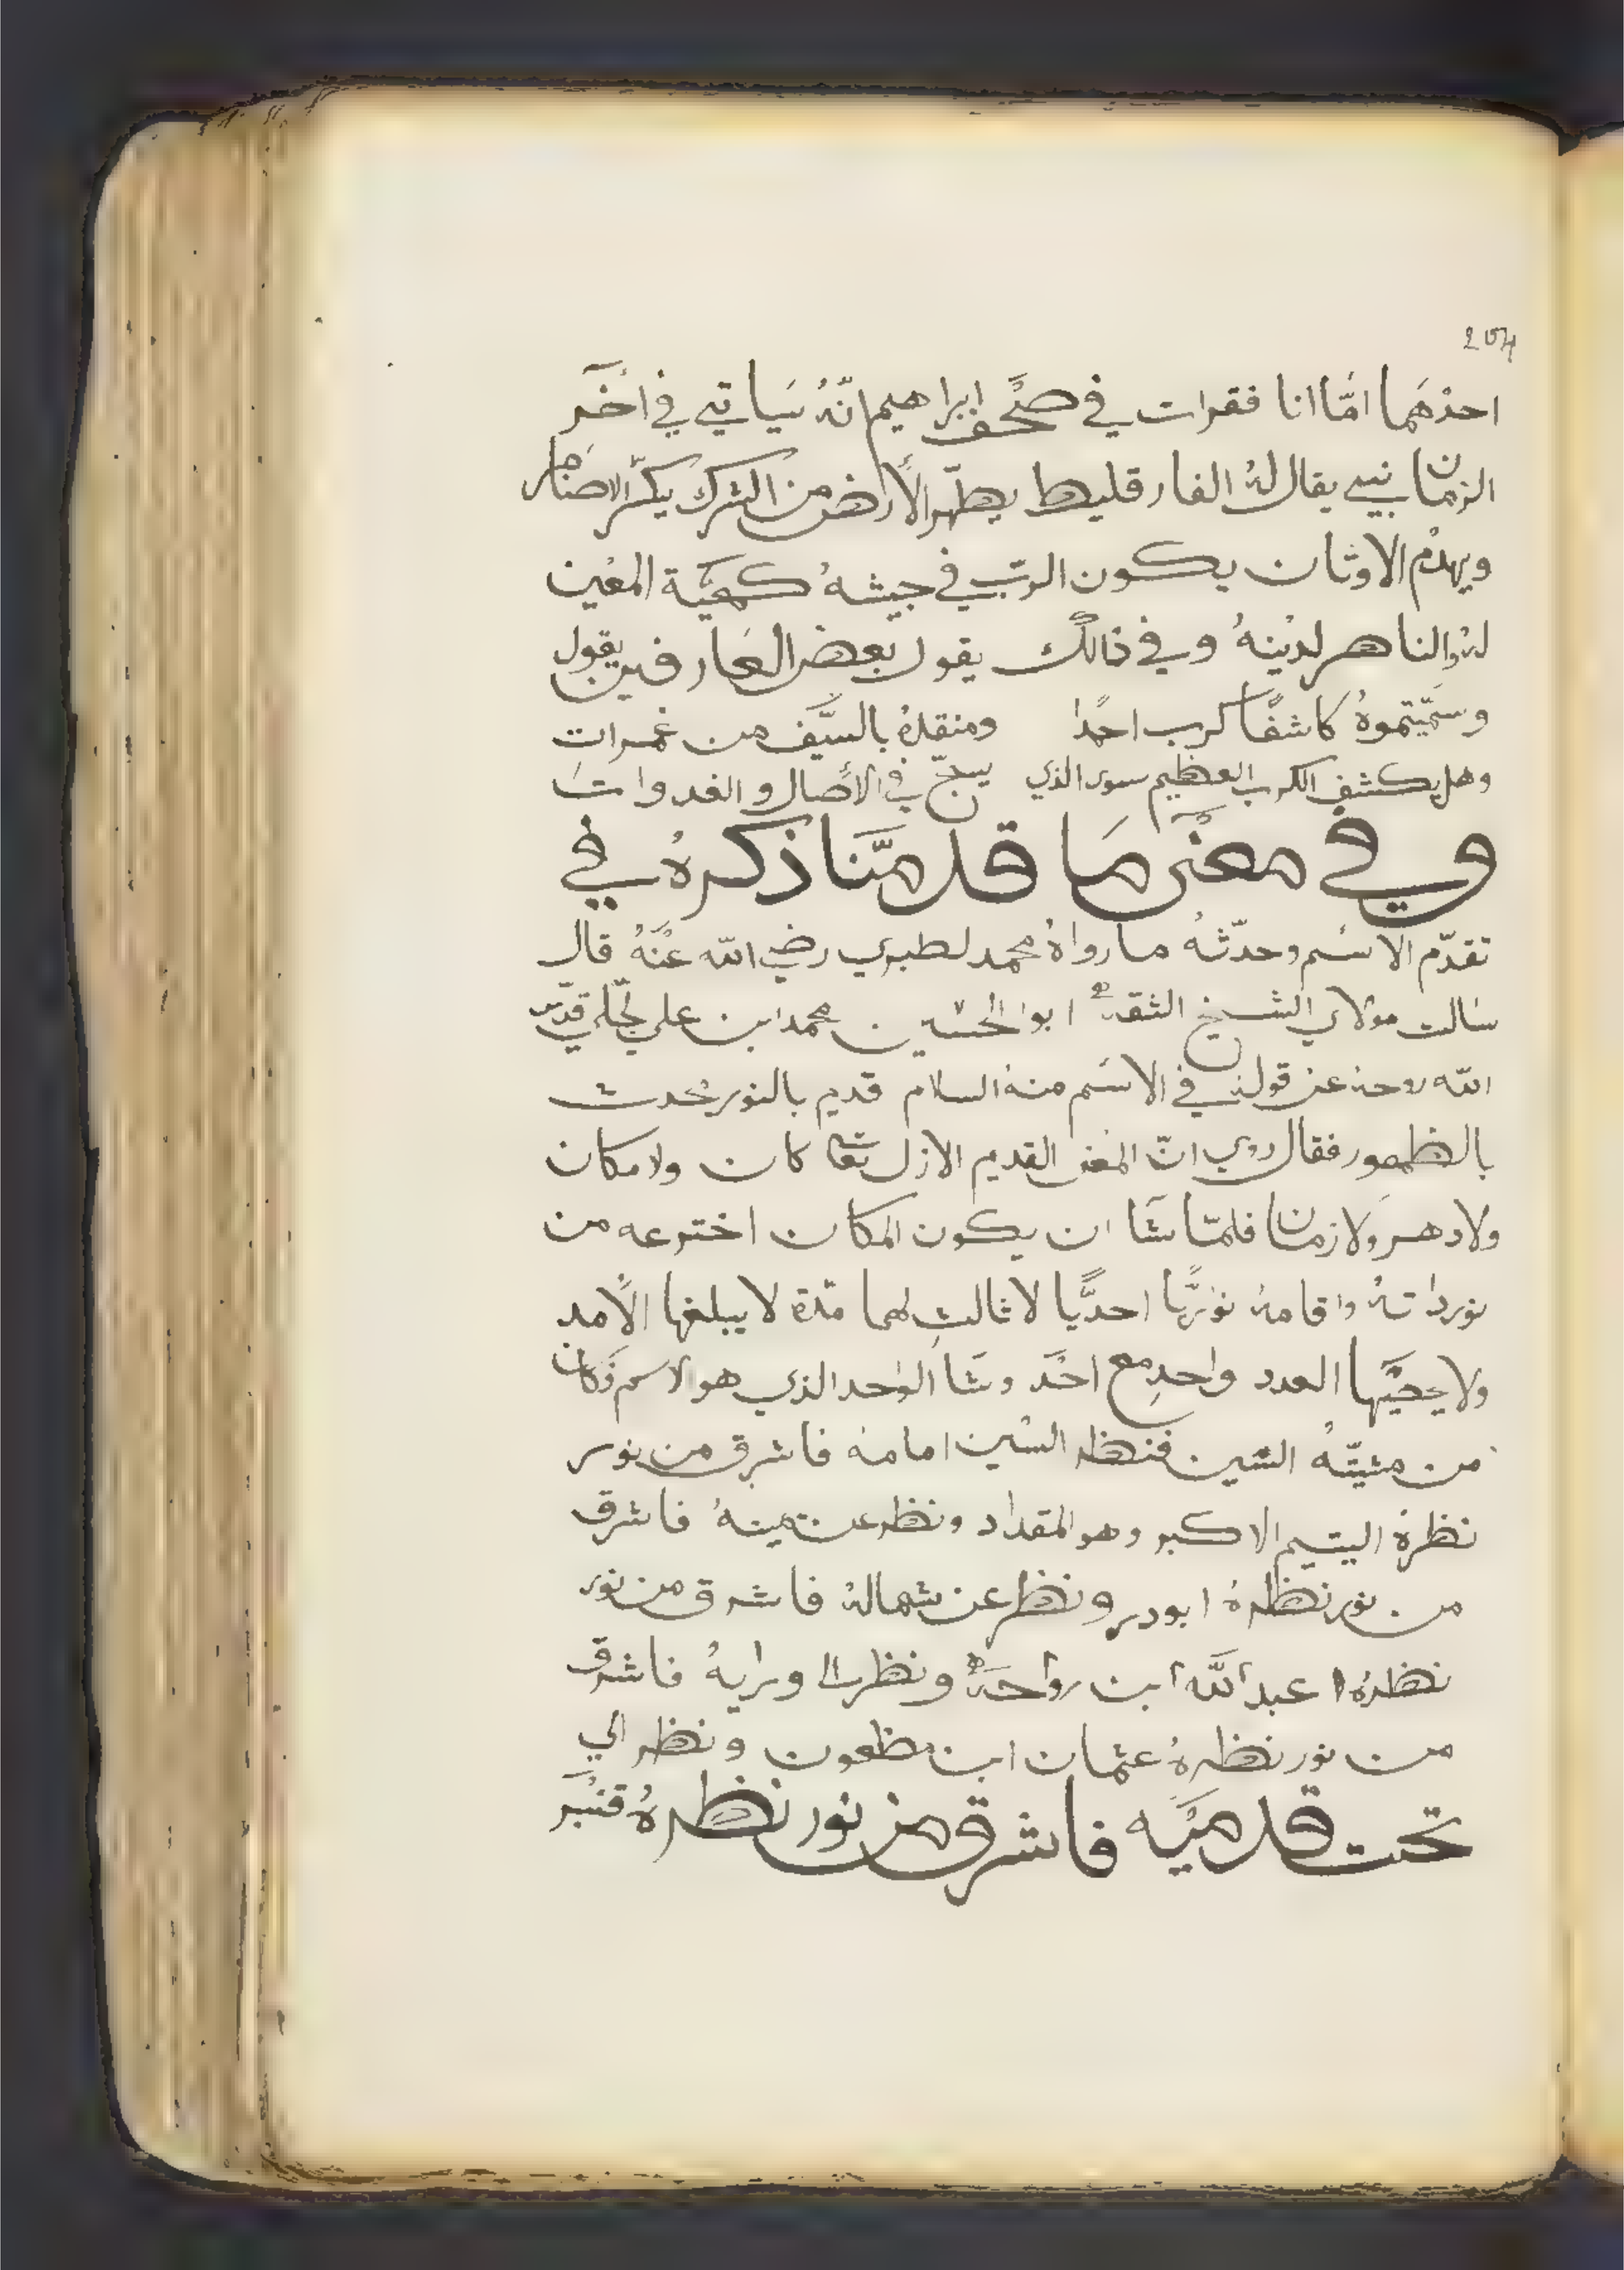 204
احدْهَما امّا انا فقرات في صحُف ابراهيم انّهُ سَياتي في اخَر
الزمان نبي يقال لهُ الفارقليط يطهّر الأرض من الشرك يكسّر الاصنام
ويهدْم الاوثان يكون الربّ في جيشهُ كهيَّة المعْين
لهُ والناصر لديْنهُ وفي ذالك يقول بعض العارفين يقول
وسمّيتموهُ كاشفًا كرب احمدًا ومنقدهُ بالسّيَف من غمرات
وهل يكشف الكرب العظيم سوى الذي يسبّح في الأصال والغدوات
وفي معنى مَا قدمّنا ذكرهُ في
تقدّم الاسْم وحدّثهُ ما رواهُ محمد لطبري رضي الله عنْهُ قال
سالت مولاي الشيخ الثقة ابو الحسْين محمد ابن علي لجّلي قدّس
الله روحهُ عن قولهُ في الاسْم منهُ السلام قديم بالنور محدث
بالظهور فقال روي انّ المعنى القديم الازل تعا كان ولا مكان
ولا دهر ولا زمان فلمّا شَا ان يكون المكان اخترعه من
نور داتهُ واقامهُ نورًيّا احديًّا لا ثالث لهما مدّة لا يبلغها الأمد
ولا يحصيَها العدد واحدِ مع احَد وشَا الواحد الذي هو الاسم فَكان
من مشيّتهُ السّين فنظر السْين امامهُ فاشرق من نور
نظرهُ اليتيم الاكبر وهو المقداد ونظر عن يمينهُ فاشرق
من نور نظرهُ ابودر ونظر عن شمالهُ فاشرق من نور
نظرهُ عبد الله ابن رواحَة ونظر الى ورايهُ فاشرق
من نور نظرهُ عثمان ابن مظعون ونظر الي
تحت قدميْه فاشرق من نور نظرهُ قنبْر